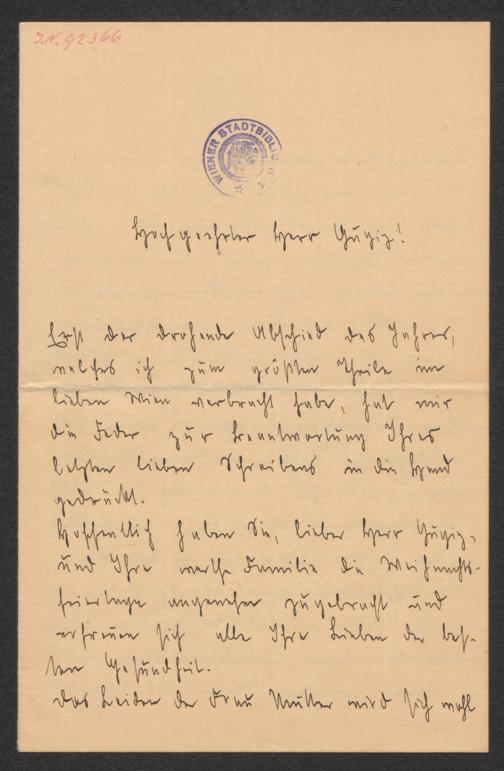 J.N. 92366
WIENER STADTBIBLIO
Hochgeehrter Herr Gugiz!
Erst der drohende Abschied des Jahres,
welches ich zum größten Theile im
lieben Wien verbracht habe, hat mir
die Feder zur Beantwortung Ihres
letzten lieben Schreibens in die Hand
gedrückt.
Hoffentlich haben Sie, lieber Herr Gugiz,
und Ihre werthe Familie die Weihnachts-
feiertage angenehm zugebracht und
erfreuen sich alle Ihre Lieben der bes-
ten Gesundheit.
Das Leiden der Frau Mutter wird sich wohl